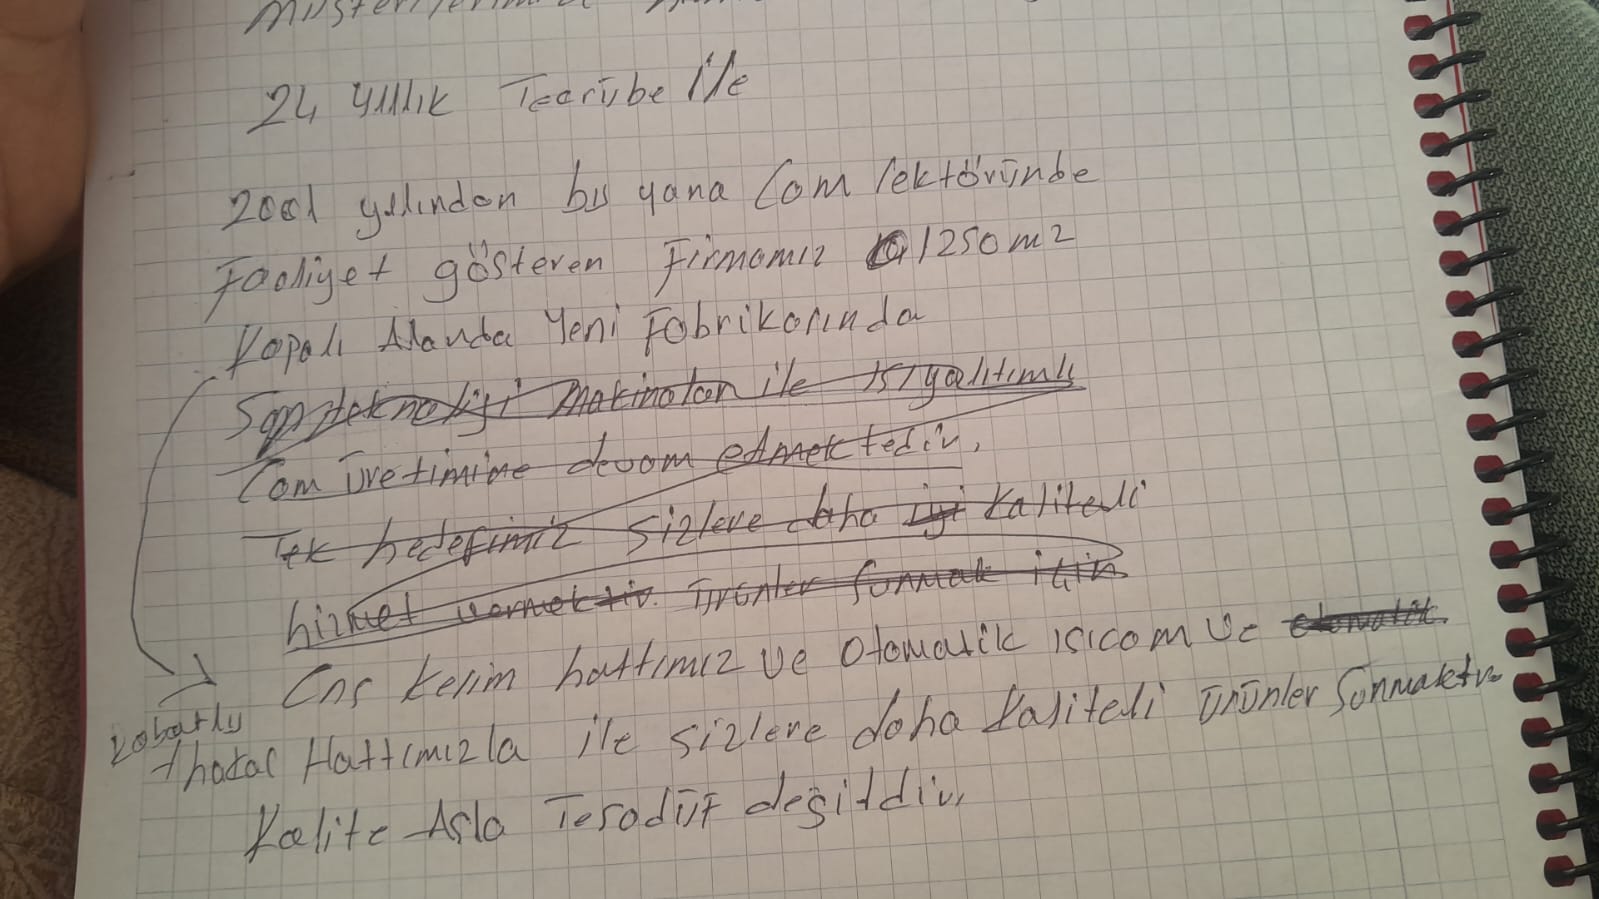 24 Yıllık Tecrübe İle
2001 yılından bu yana Cam sektöründe
Faaliyet gösteren Firmamız 1250 m2
Kapalı Alanda Yeni Fabrikasında
Son teknoloji Makinaları ile ısı yalıtımlı
Cam üretimine devam etmektedir.
Tek hedefimiz sizlere daha iyi Kaliteli
hizmet vermektir. Ürünler Sunmak için
Cnc Kesim hattımız ve Otomatik ısıcam ve otomatik
Robotlu
Hattımızla ile sizlere daha Kaliteli Ürünler Sunmaktır
Kalite Asla Tesadüf değildir.